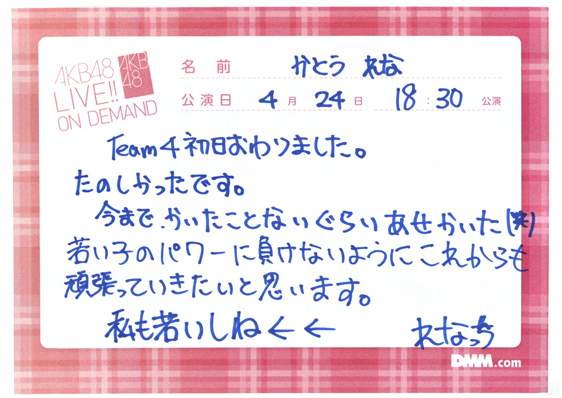 AKB48
LIVE!!
ON DEMAND
AKB
48
名前 かとう れな
公演日 4月 24日 18:30 公演
Team4初日おわりました。
たのしかったです。
今まで、かいたことないぐらいあせかいた(笑)
若い子のパワーに負けないようにこれからも
頑張っていきたいと思います。
私も若いしね←←
れなっち
DMM.com